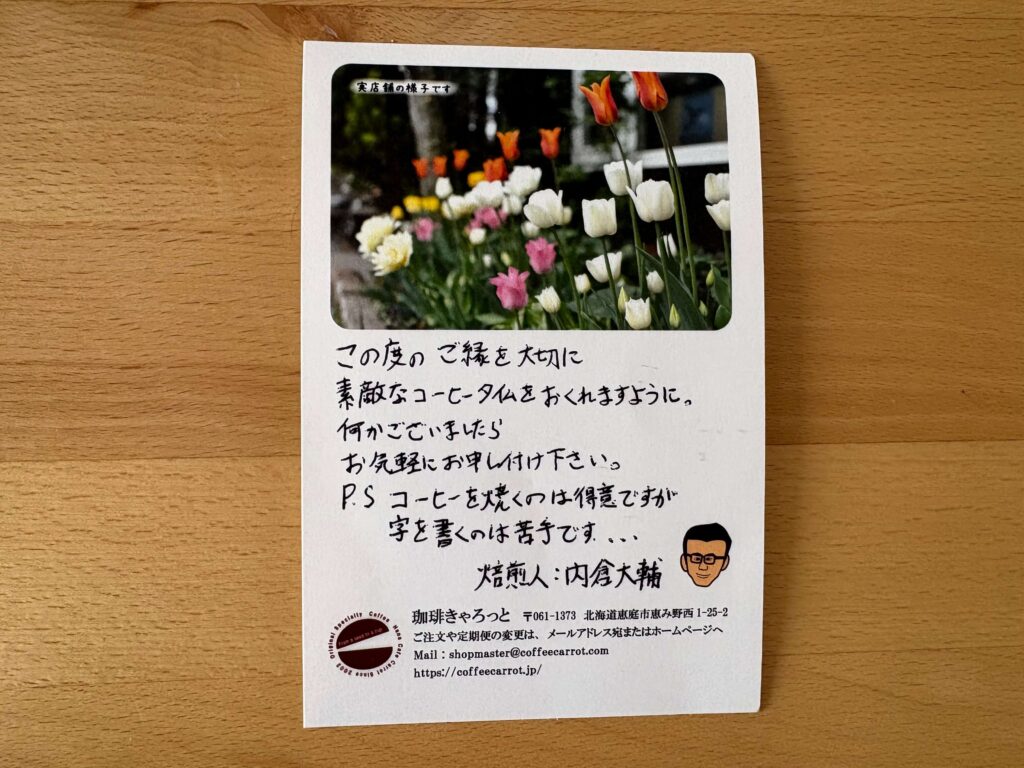 実店舗の様子です
この度のご縁を大切に
素敵なコーヒータイムをおくれますように。
何かございましたら
お気軽にお申し付け下さい。
P.S コーヒーを焼くのは得意ですが
字を書くのは苦手です...
焙煎人:内倉大輔
珈琲きゃろっと 〒061-1373 北海道恵庭市恵み野西1-25-2
ご注文や定期便の変更は、メールアドレス宛またはホームページへ
Mail:shopmaster@coffeecarrot.com
https://coffeecarrot.jp/
Original Specialty Coffee
Since 2003
From a seed to a cup